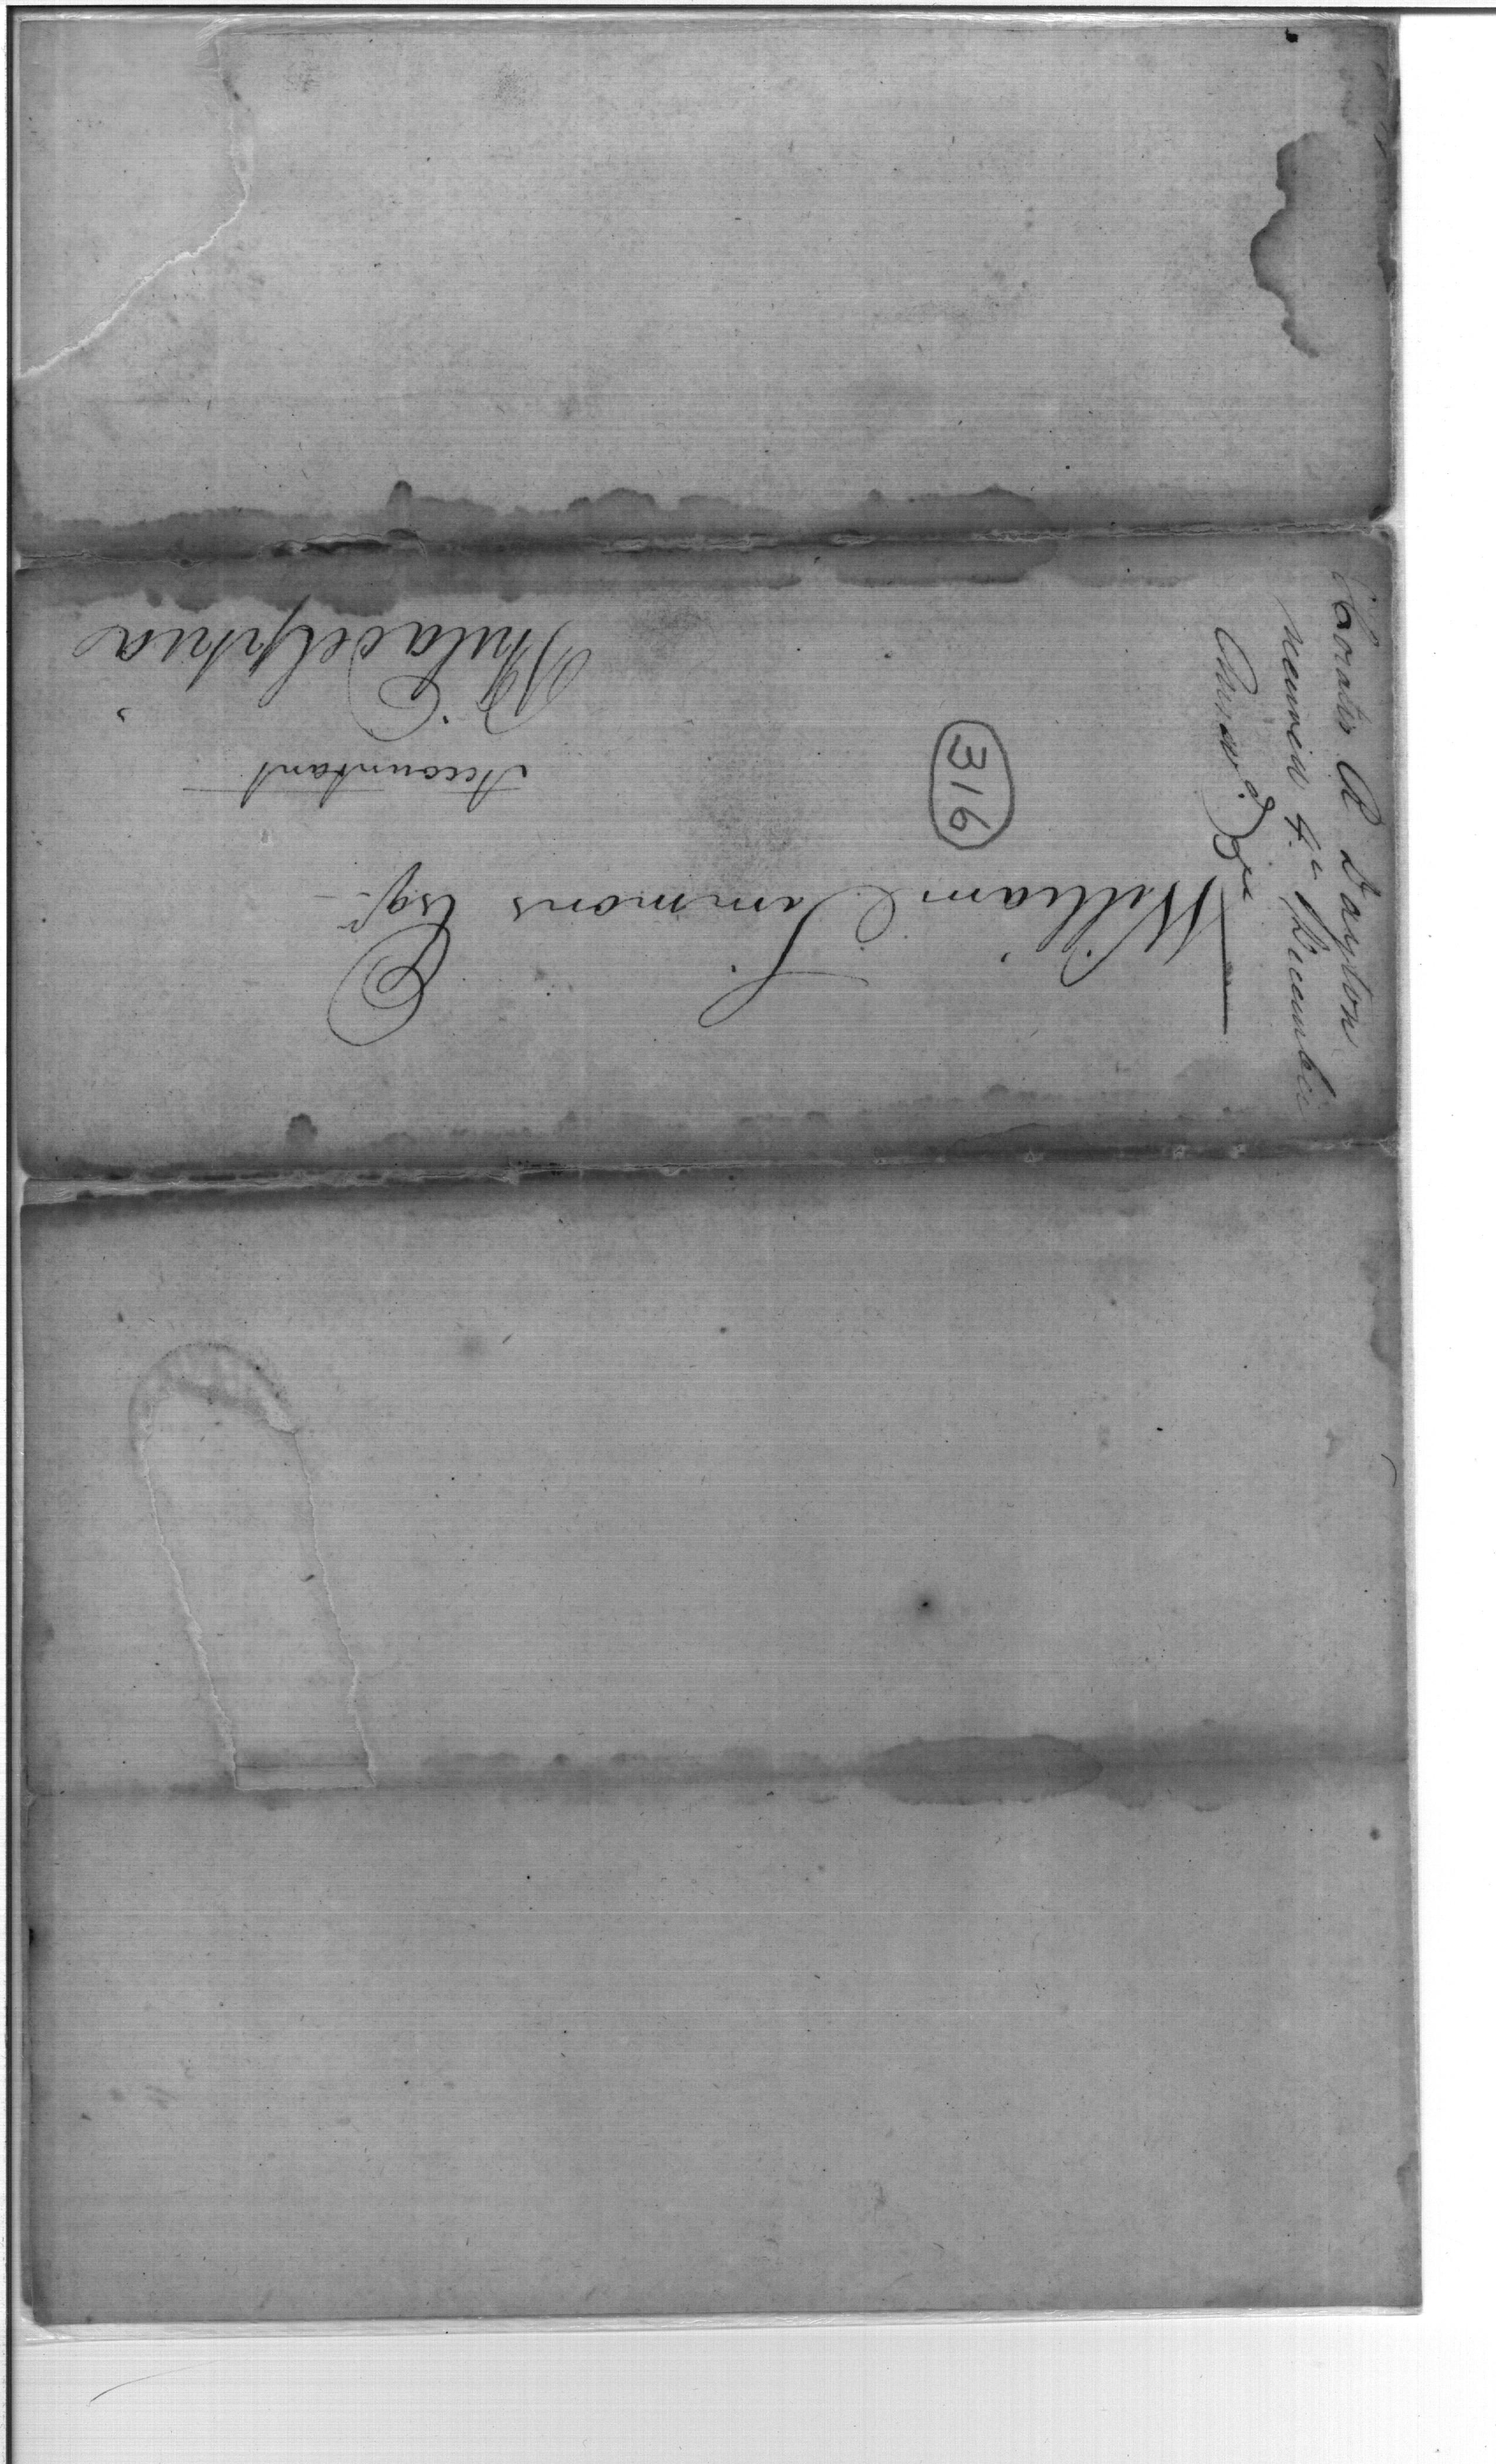 William Simmons Esqr.
Accountant
Philadelphia
316
Horatio R Dayton
received 4th December
Answd. Do